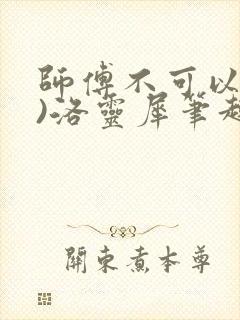 師傅不可以
)洛靈犀筆趣
關東煮本尊